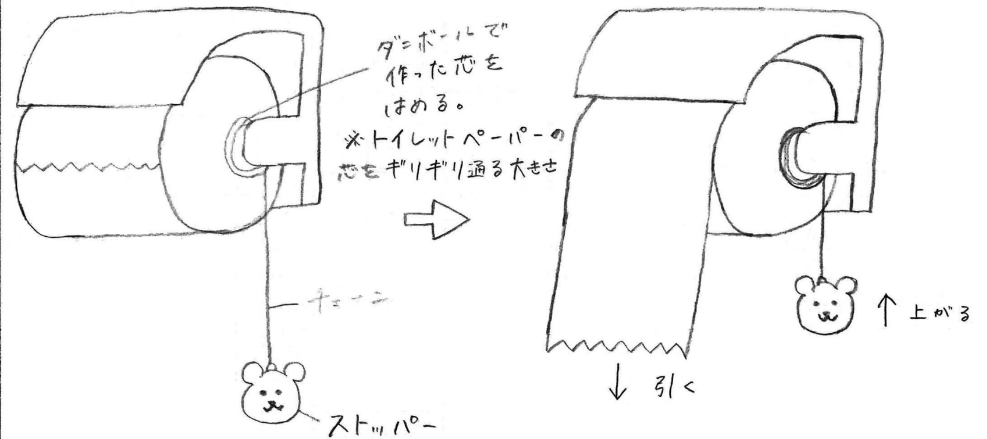 ダンボールで
作った芯を
はめる。
※トイレットペーパーの
芯をギリギリ通る大きさ
チェーン
ストッパー
引く
上がる